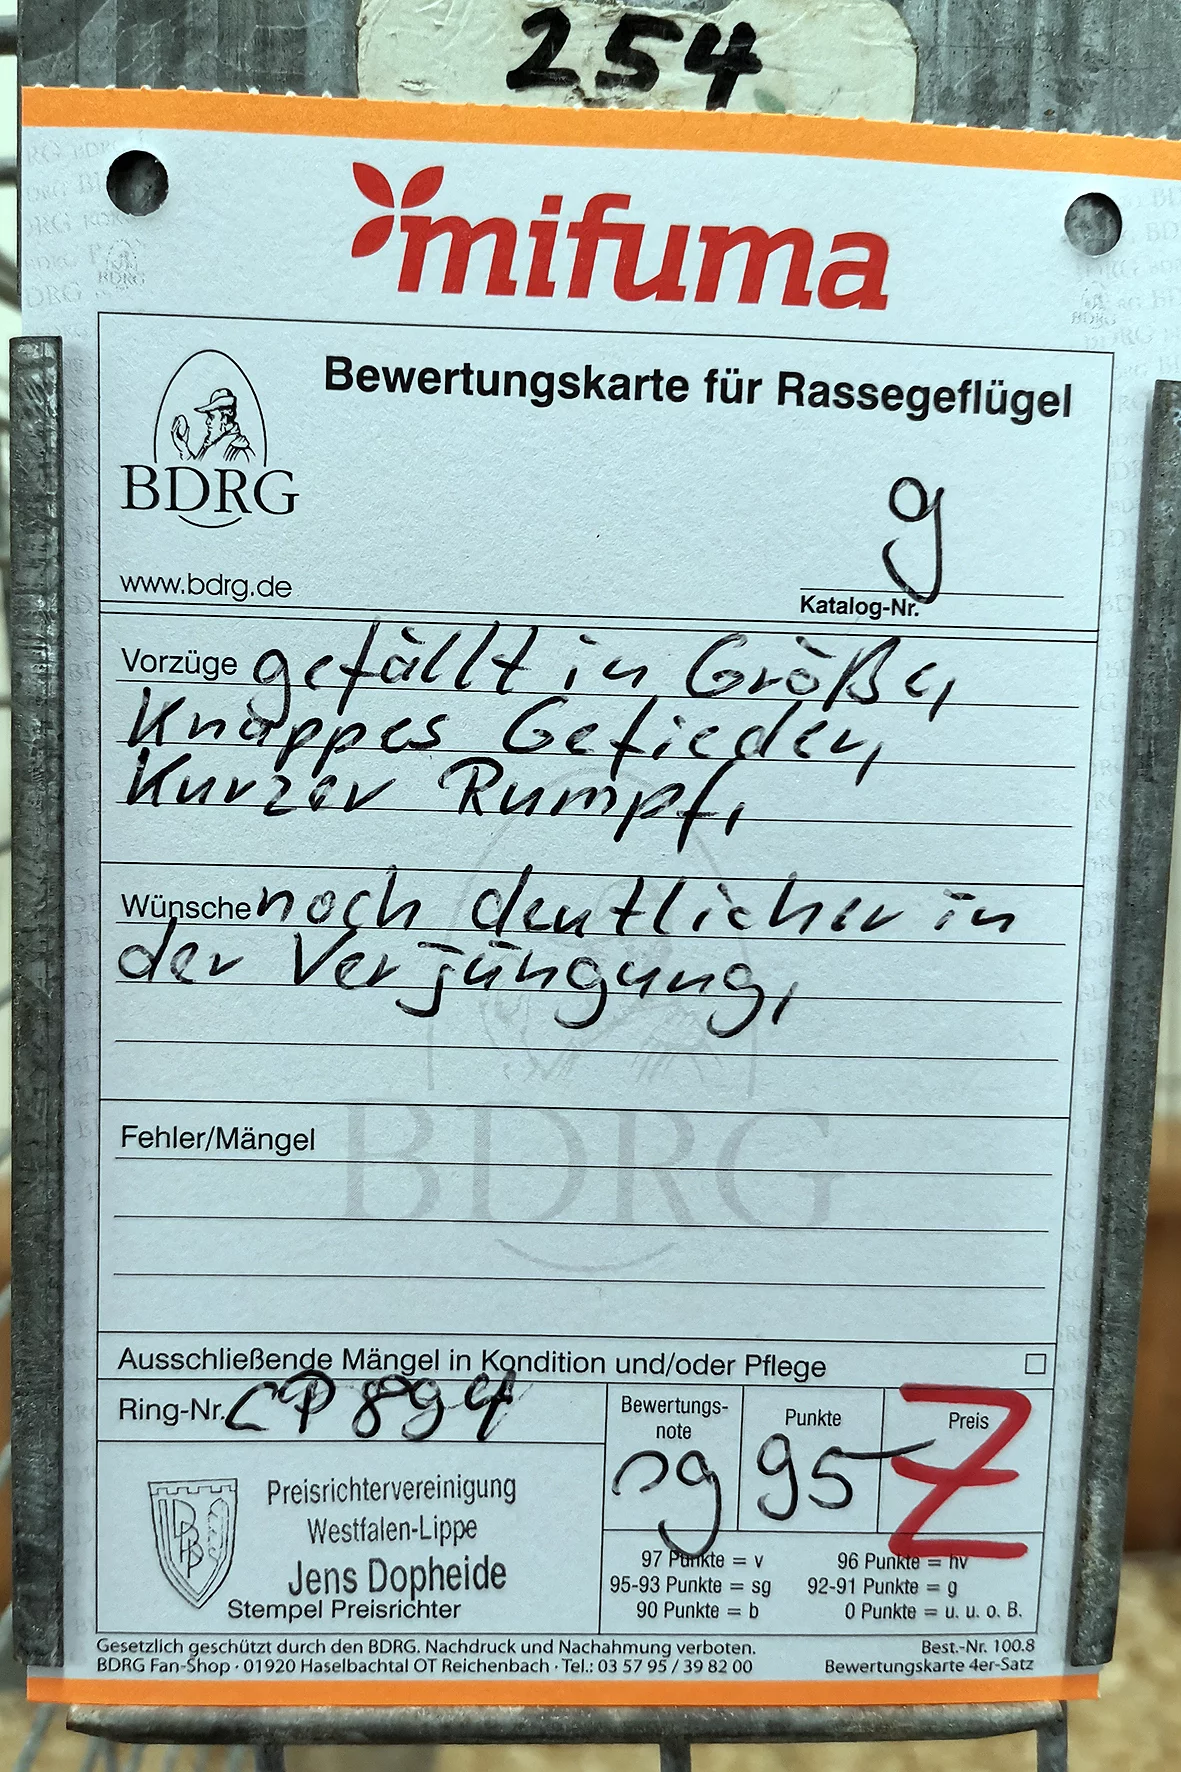 254
mifuma
Bewertungskarte für Rassegeflügel
BDRG
9
www.bdrg.de
Katalog-Nr.
Vorzüge gefällt in Größe,
Knappes Gefieder,
Kurzer Rumpf,
Wünsche noch deutlicher in
der Verjüngung,
Fehler/Mängel
BDRG
Ausschließende Mängel in Kondition und/oder Pflege
Ring-Nr. CP 894
Bewertungs-
note
sg
Punkte
95
Preis
Z
Preisrichtervereinigung
Westfalen-Lippe
Jens Dopheide
Stempel Preisrichter
97 Punkte = v 96 Punkte = hv
95-93 Punkte = sg 92-91 Punkte = g
90 Punkte = b 0 Punkte = u. u. o. B.
Gesetzlich geschützt durch den BDRG. Nachdruck und Nachahmung verboten. Best.-Nr. 100.8
BDRG Fan-Shop · 01920 Haselbachtal OT Reichenbach · Tel.: 03 57 95 / 39 82 00 Bewertungskarte 4er-Satz